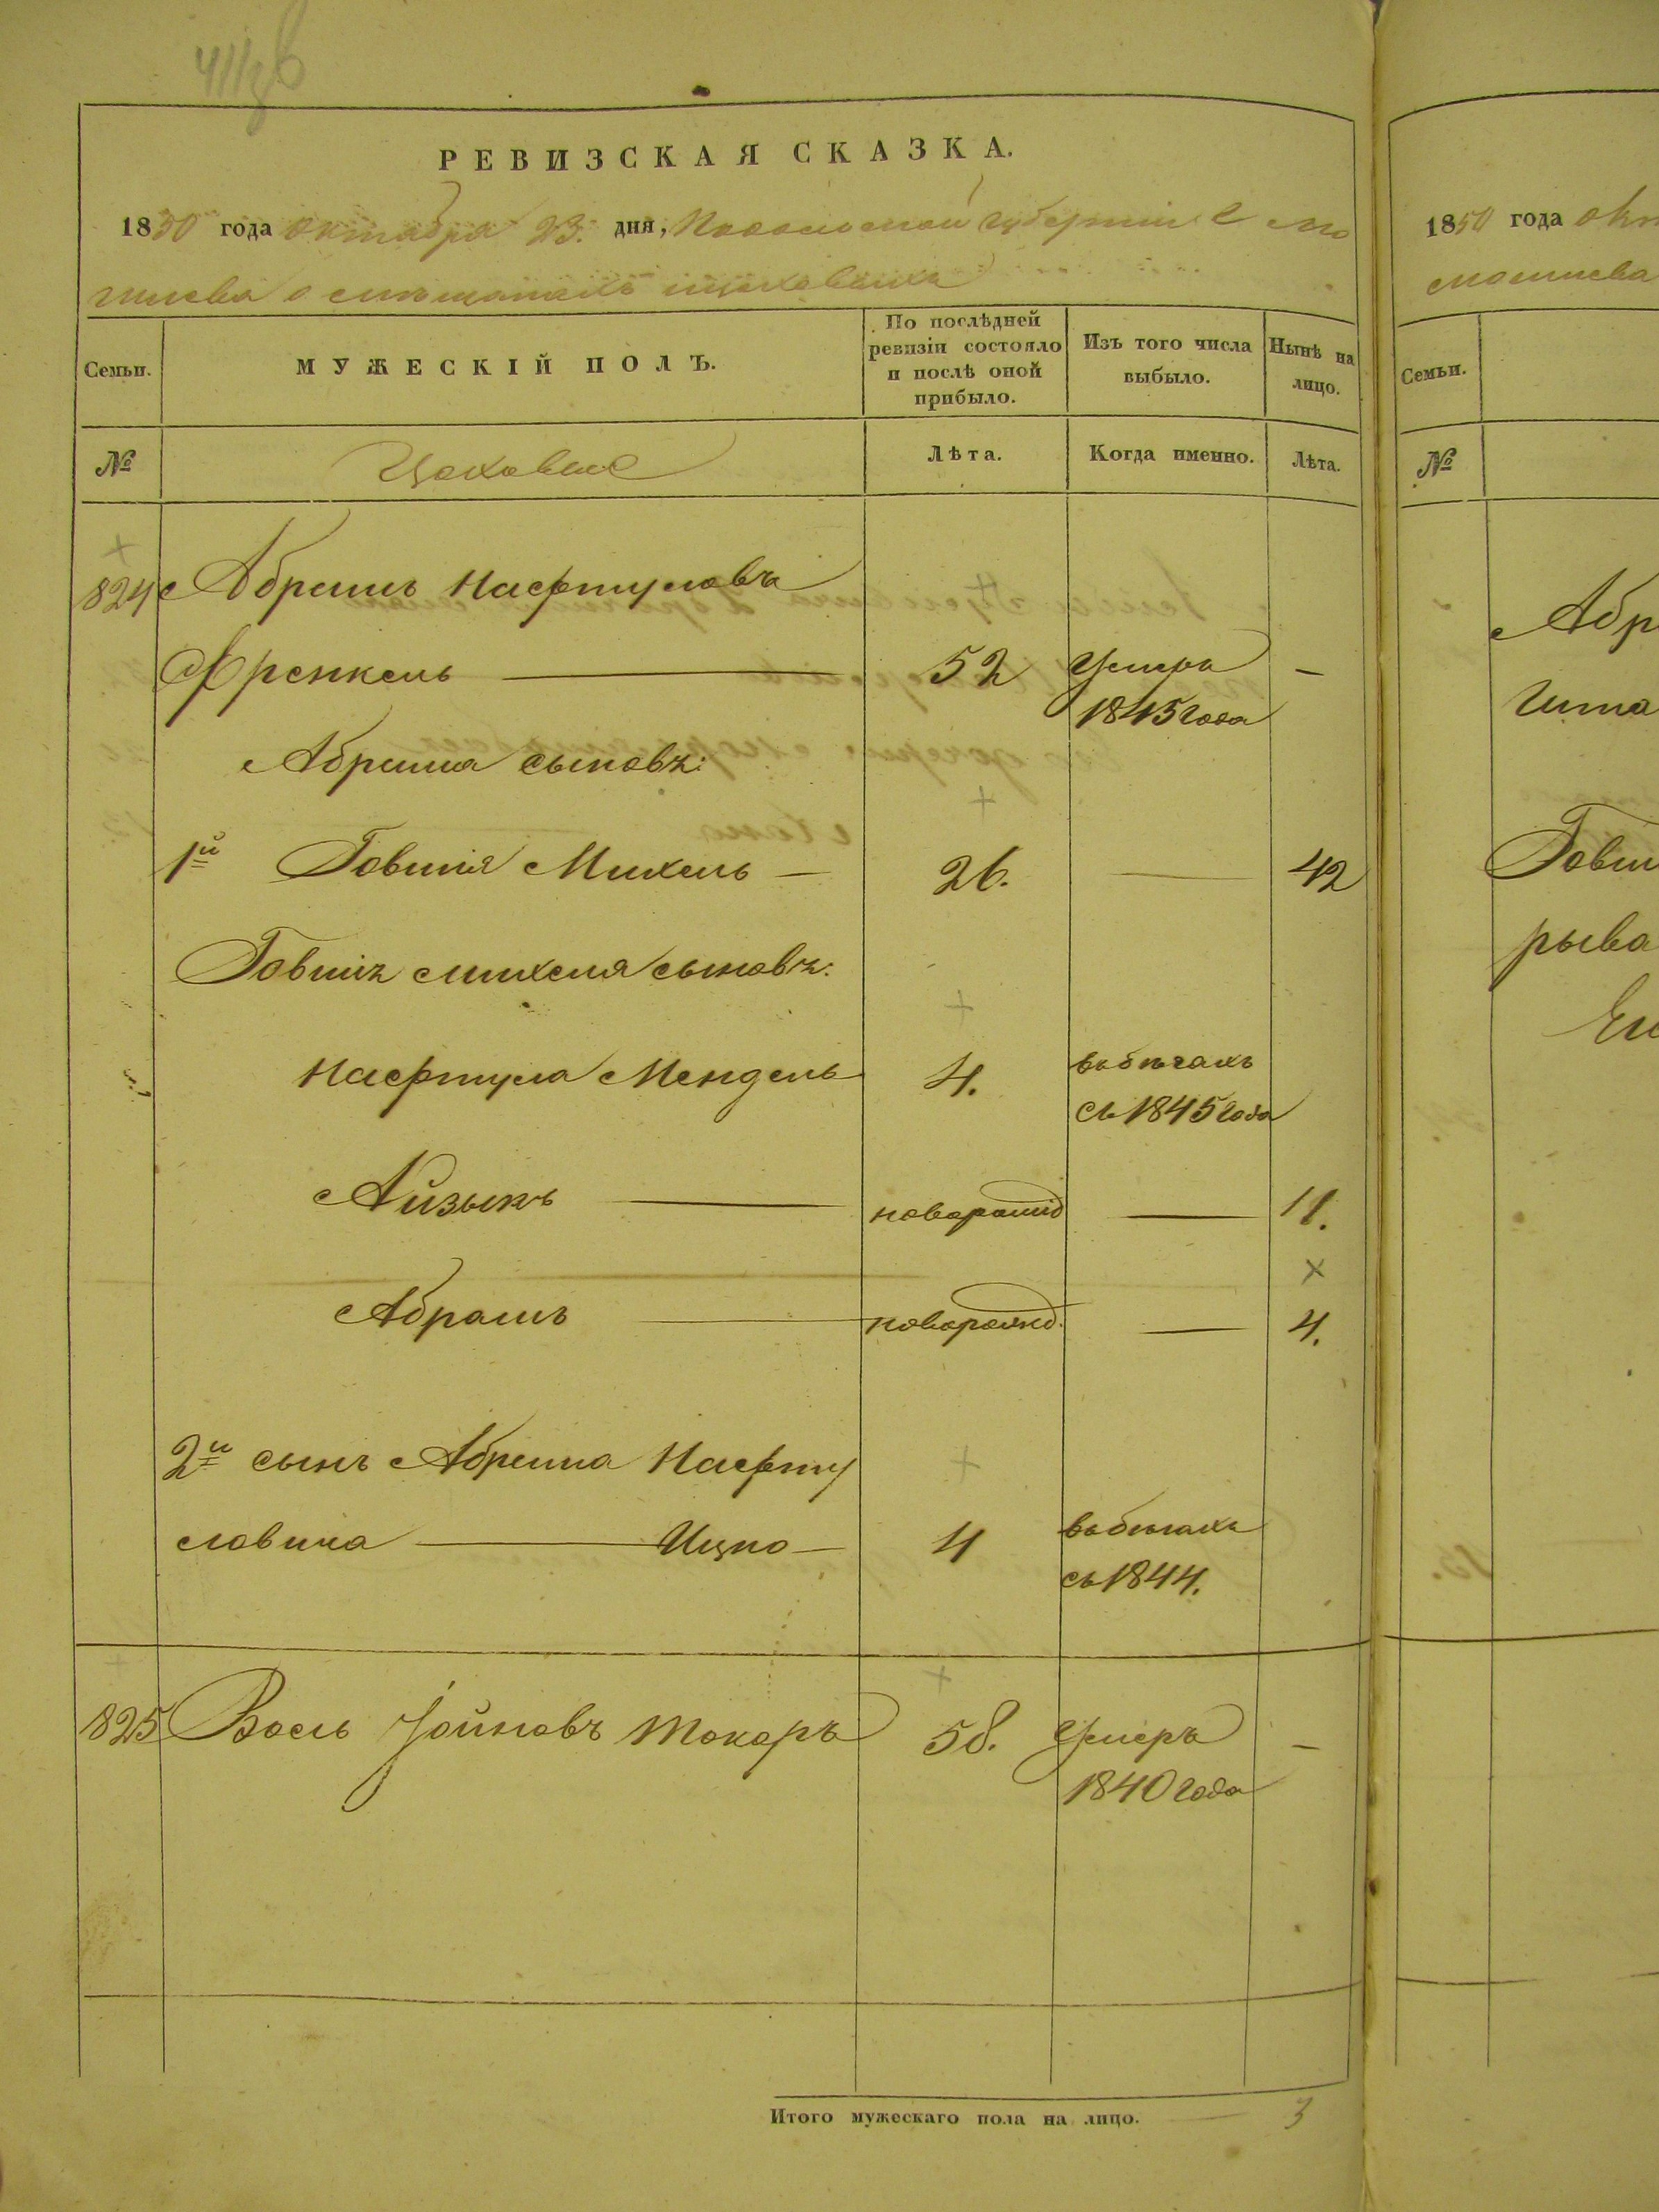 РЕВИЗСКАЯ СКАЗКА.
1850 года октября 23. дня, Подольской губернии г Мо
гилева о мещанахъ цеховыхъ
Семьи.
МУЖЕСКІЙ ПОЛЪ.
По послѣдней
ревизіи состояло
и послѣ оной
прибыло.
Изъ того числа
выбыло.
Нынѣ на
лицо.
№
Цеховые
Лѣта.
Когда именно.
Лѣта.
824 Абрамъ Нафтуловъ
Френкель — 52 Умеръ —
1845 года
Абрама сыновъ:
1й Говшія Михель — 26. — 42
Говшія Михеля сыновъ:
Нафтула Мендель 4. въ бѣгахъ
съ 1845 года
Айзыкъ — новорожд — 11.
Абрамъ — новорожд. — 4.
2й сынъ Абрама Нафту
ловича — Ицко — 4 въ бѣгахъ
съ 1844.
825 Іойновъ Токаръ 58. Умеръ —
1840 года
Итого мужескаго пола на лицо. — 3
1850 года окт
могилева
Семьи.
№
Абр
Гитла
Говш
рыва
Ег